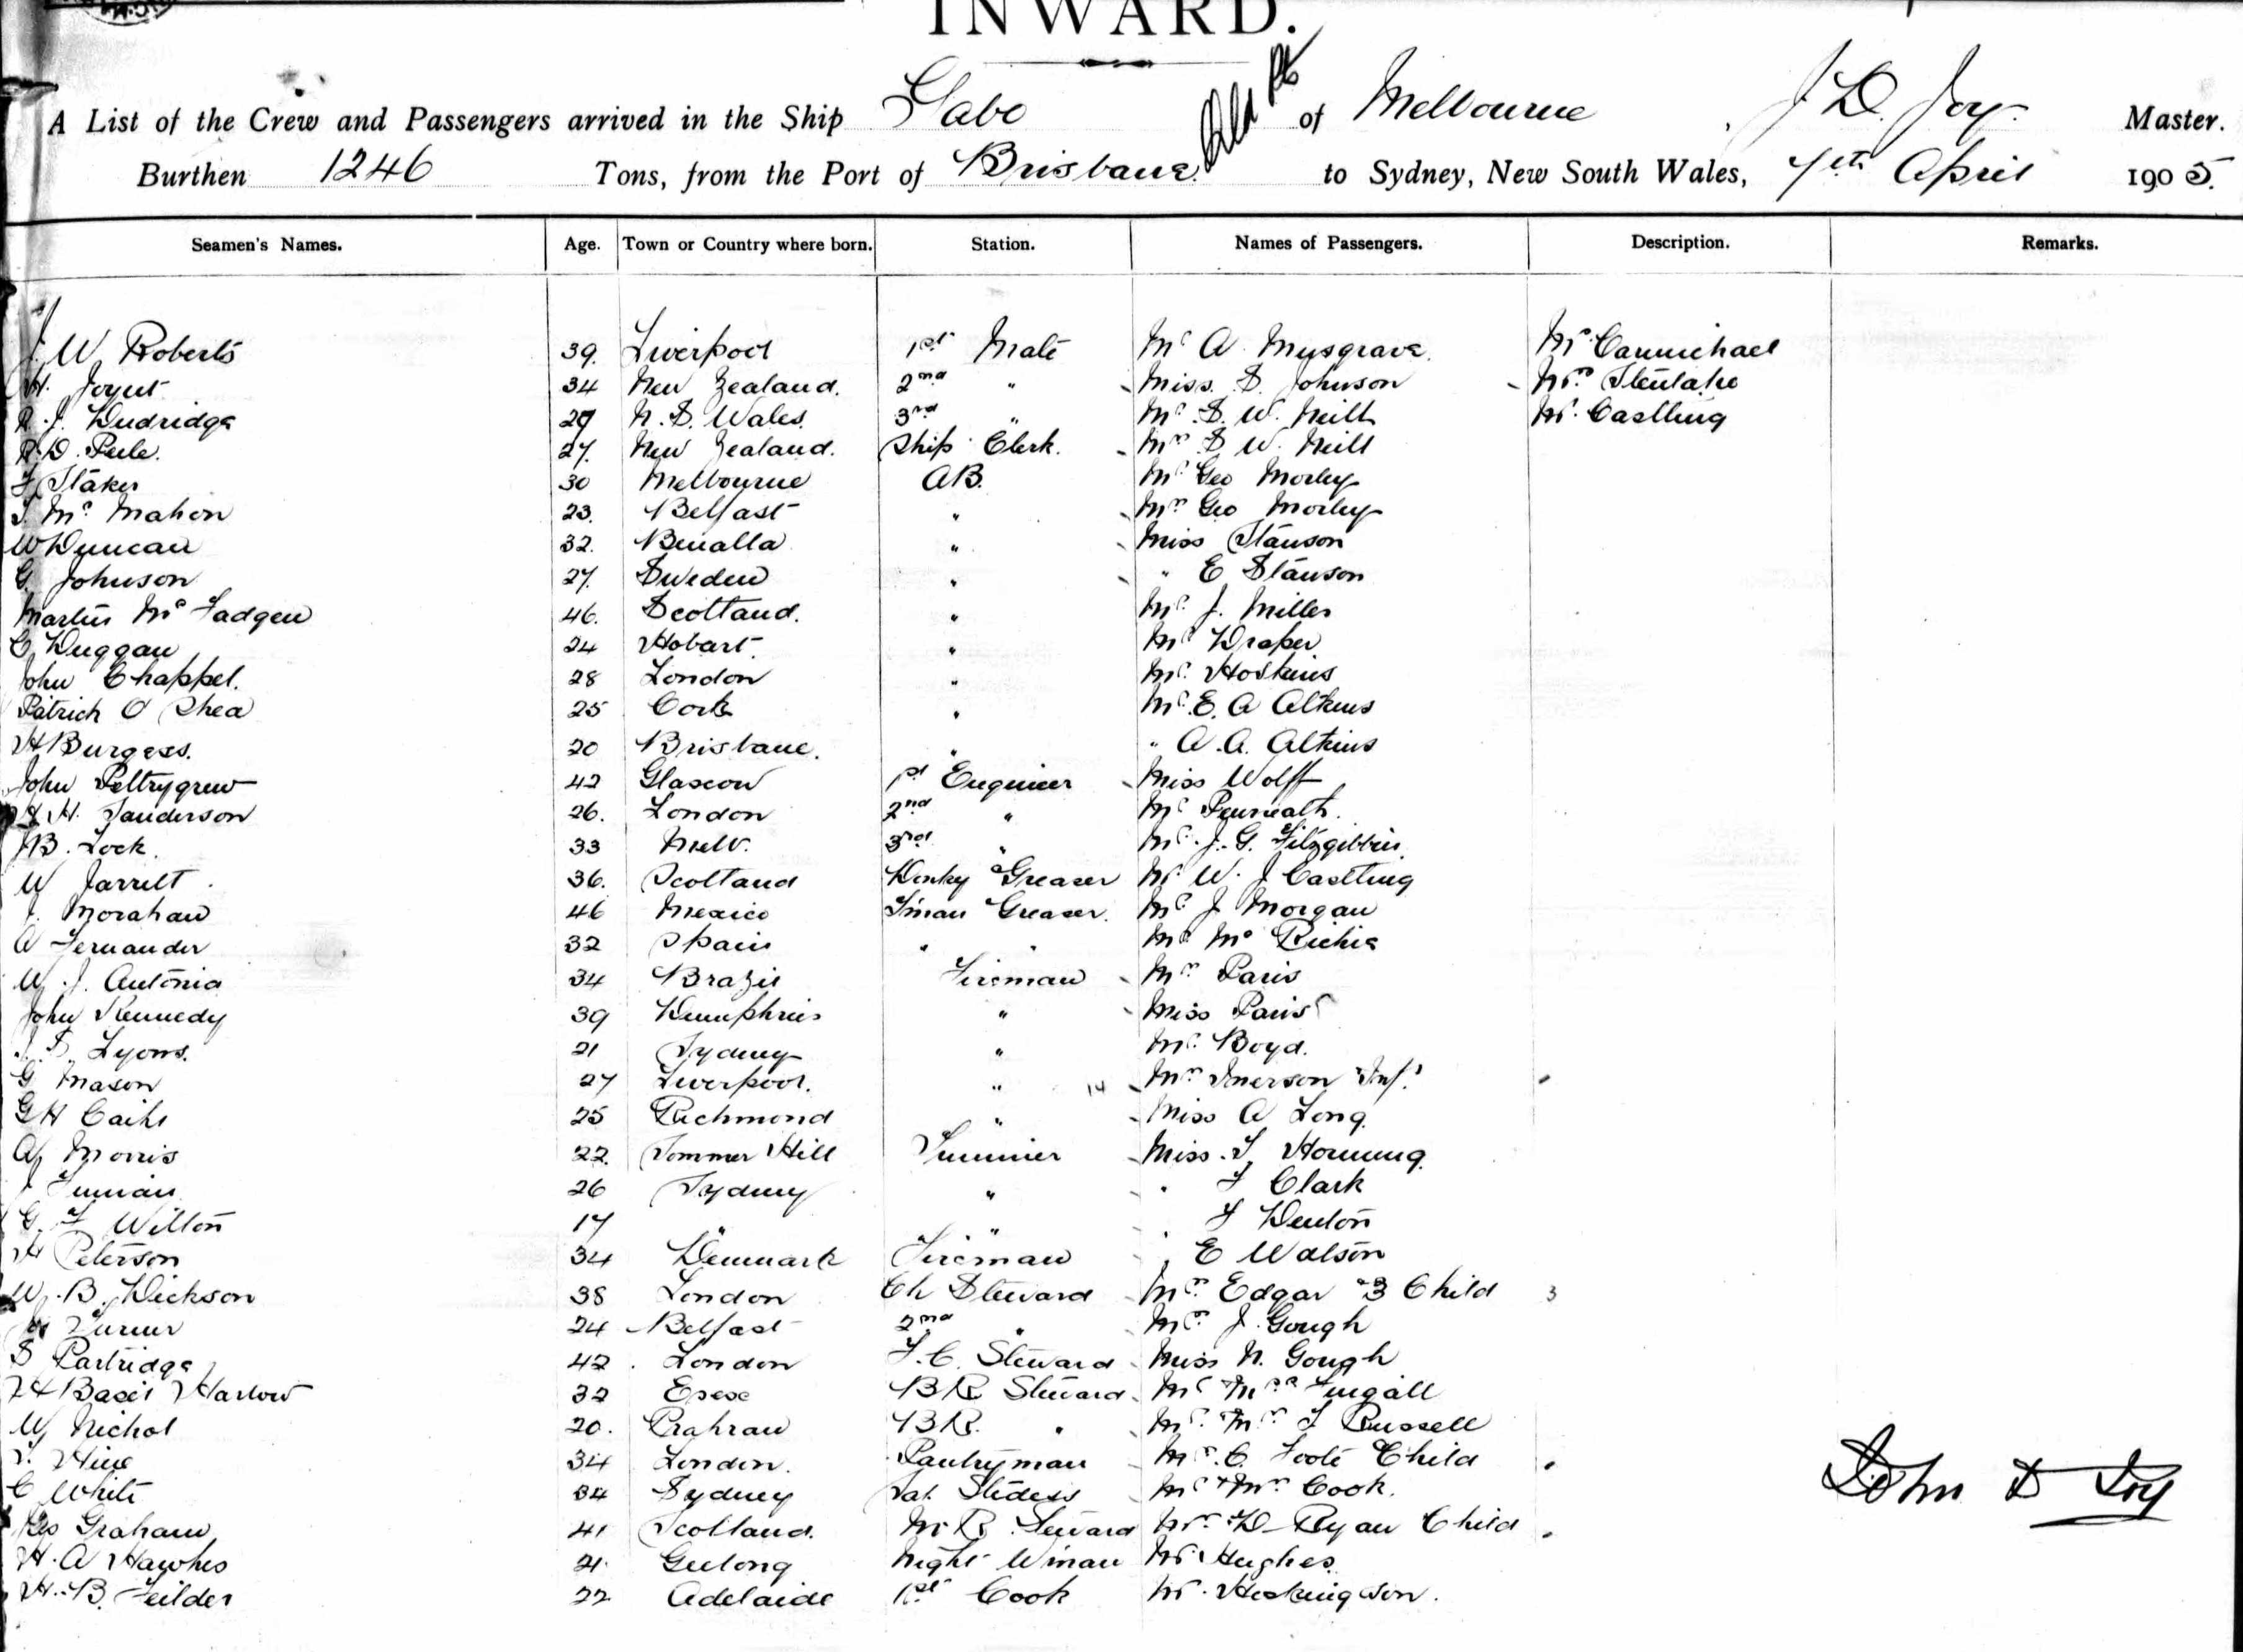 INWARD.
A List of the Crew and Passengers arrived in the Ship Gabo of Melbourne, J D. Joy. Master.
Burthen 1246 Tons, from the Port of Brisbane. to Sydney, New South Wales, 7th April 1905.
Seamen's Names. Age. Town or Country where born. Station. Names of Passengers. Description. Remarks.
J. W Roberts 39. Liverpool 1st Mate Mr A. Musgrave. Mr. Carmichael
H. Joynt 34 New Zealand. 2nd " Miss. S. Johnson Mrs Stenlake
R. J. Dudridge 29 N. S. Wales. 3rd " Mr S. W. Neill Mr. Castling
R. D. Peele. 27. New Zealand. Ship Clerk. Mrs S W. Neill
F Staker 30 Melbourne AB. Mr Geo Morley
T. Mc Mahon 23. Belfast " Mrs Geo Morley
W Duncan 32. Benalla " Miss Stanson
G. Johnson 27. Sweden " " E Stanson
Martin Mc Fadgen 46. Scotland. " Mr. J. Miller
C Duggan 24 Hobart. " Mr Draper
John Chappel. 28 London " Mr. Hoskins
Patrick O Shea 25 Cork " Mr. E. A Atkins
H Burgess. 20 Brisbane. " " A. A. Atkins
John Pettygrew 42 Glascow 1st Engineer Miss Wolff
H. Sanderson 26. London 2nd " Mr Penneath.
J B. Lock. 33 Melb. 3rd " Mr. J. G. Fitzgibbin
W Jarrett. 36. Scotland Donky Greaser Mr W. J Castling
J. Morahan 46 Mexico Fman Greaser. Mr. J Morgan
A Fernander 32 Spain " " Mr Mc Richie
W. J. Antonia 34 Brazil Fireman Mrs Paris
John Kennedy 39 Dumphries " Miss Paris
J. S. Lyons. 21 Sydney " Mr. Boyd.
G Mason 27 Liverpool. " 14 Mrs Imerson Inf.
G H 25 Richmond " Miss A Long.
A Morris 22. Sommer Hill Trimmer Miss. Hornung.
J 26 Sydney " " F Clark
G. F Wilton 17 " " " F Denton
H Peterson 34 Denmark Fireman " E Watson
W. B. Dickson 38 London Ch Steward Mrs Edgar 3 Child 3
Turner 24 Belfast 2nd " Mr. J. Gough
S Partridge 42. London F. C. Steward Miss N. Gough
Basil Harlow 32 Esexe BR Steward Mr Mrs Fingall
W Nichol 20. Prahran BR. " Mr. Mrs F Russell
T. Hine 34 London. Pantryman Mrs. C. Foote Child
C White 34 Sydney Sal. Stdess Mr + Mrs Cook.
Jas Graham 41 Scotland. M R Steward Mrs D Ryan Child
H. A Hawkes 21. Geelong Night Wman Mr. Hughes.
H. B. Feilder 22 Adelaide 1st Cook Mr. Hoskingson.
John D Joy